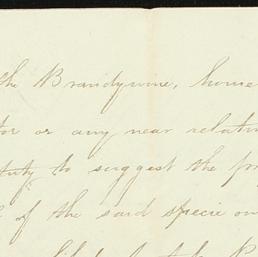 the Brandywine, home
tor or any near relation
duty to suggest the pr
of the said specie on